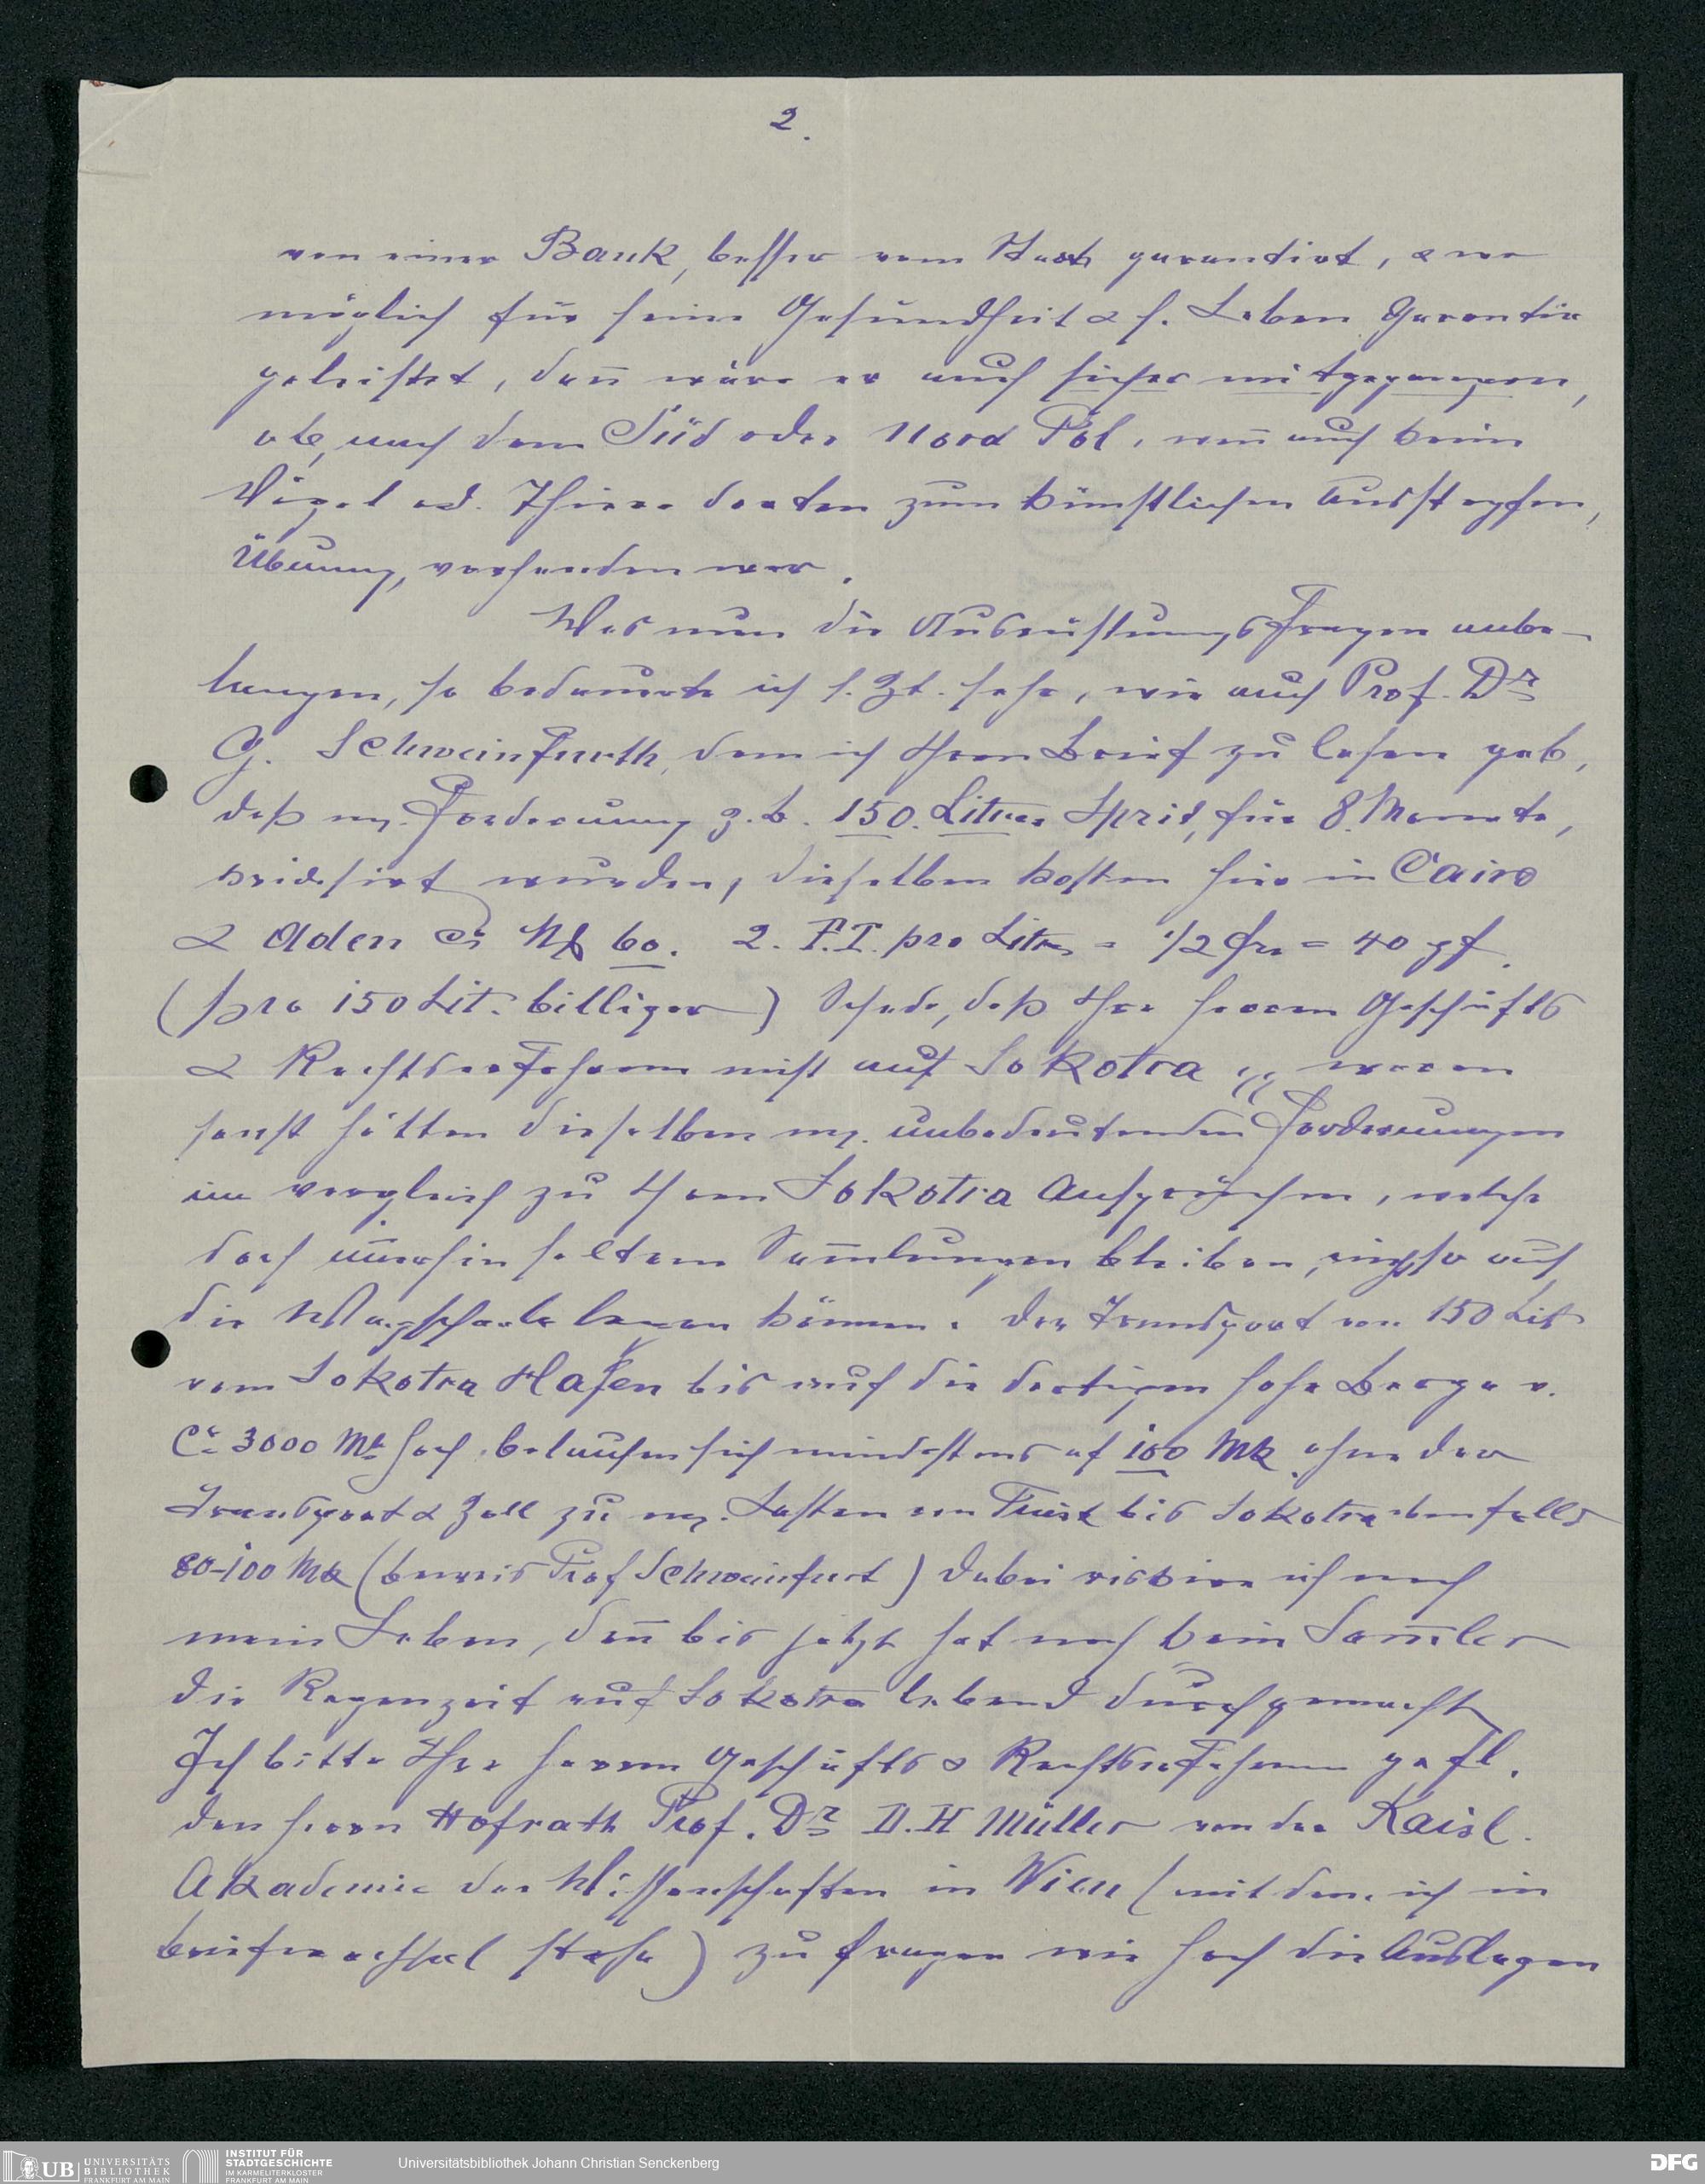 2.
von einer Bank, besser vom Staate garandirt, & wo
möglich für seine Gesundheit & s. Leben Garantie
geleistet, dan̄ wäre er auch sicher mitgegangen,
ob nach dem Süd oder Nord Pol, wen̄ auch keine
Vögel od. Thiere dorten zum künstlichen Ausstopfen,
Übung, vorhanden war.
Was nun die Ausrüstungsfragen anbe-
langen, so bedauerte ich s. Zt. sehr, wie auch Prof. Dr
G. Schweinfurth, dem ich Ihren Brief zu lesen gab,
daß m. Forderung z.b. 150. Liter Sprit, für 8 Monate,
kridisirt wurden, dieselben kosten hier in Cairo
& Aden ca Mk 60. 2. P.T. pro Liter = 1/2 Frs = 40 pf.
(pro 150 Lit. billiger) Schade, daß Ihre Herren Geschäfts
& Rechtserfahrenen nicht auf Sokotra waren
sonst hätten dieselben m. unbedeutenden Forderungen
im vergleich zu Ihren Sokotra Ansprüchen, welche
doch im̄erhin seltene Sam̄lungen bleiben, auf
die Wagschaale legen können. Der Transport von 150 Lit
vom Sokotra Hafen bis auf die dortigen hohe Berge v.
Ca 3000 Mt hoch, belaufen sich mindestens auf 100 Mk ohne der
Transport & Zoll zu m. Lasten von Triest bis Sokotra ebenfalls
80-100 Mk (beweis Prof Schweinfurt) Dabei riskire ich noch
mein Leben, den̄ bis jetzt hat noch kein Sam̄ler
die Regenzeit auf Sokotra lebend durchgemacht
Ich bitte Ihre Herren Geschäfts & Rechtserfahrenen gefl.
den Herrn Hofrath Prof. Dr D. H Müller von der Kaisl.
Akademie der Wissenschaften in Wien (mit dem ich in
briefwechsel stehe) zu fragen wie hoch die Auslagen
UB UNIVERSITÄTS BIBLIOTHEK FRANKFURT AM MAIN
INSTITUT FÜR STADTGESCHICHTE IM KARMELITERKLOSTER FRANKFURT AM MAIN
Universitätsbibliothek Johann Christian Senckenberg
DFG